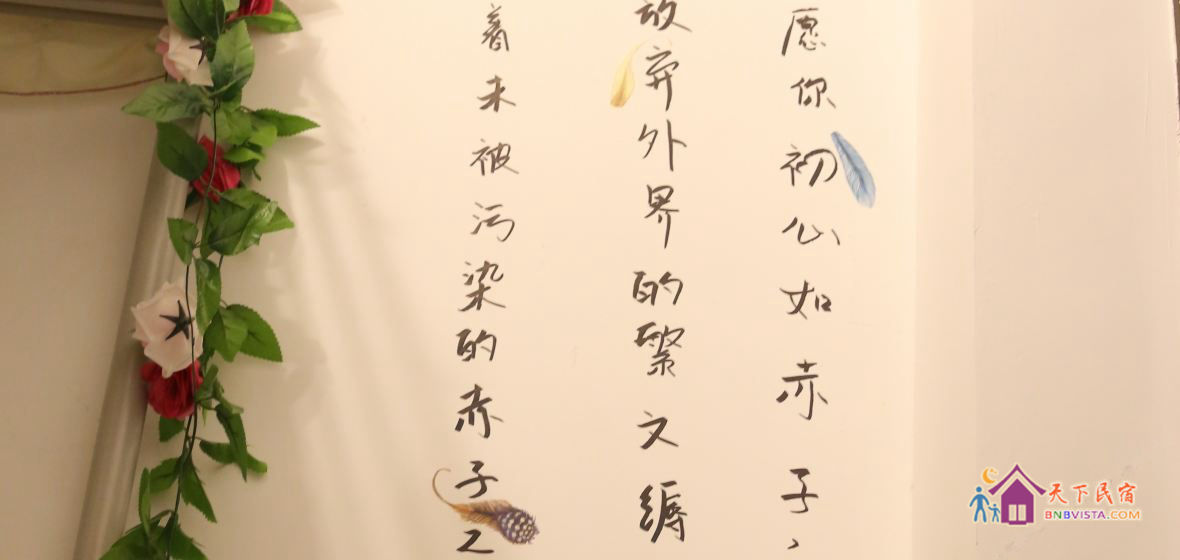 愿你初心如赤子,
放弃外界的繁文缛
着未被污染的赤子之
天下民宿
BNBVISTA.COM